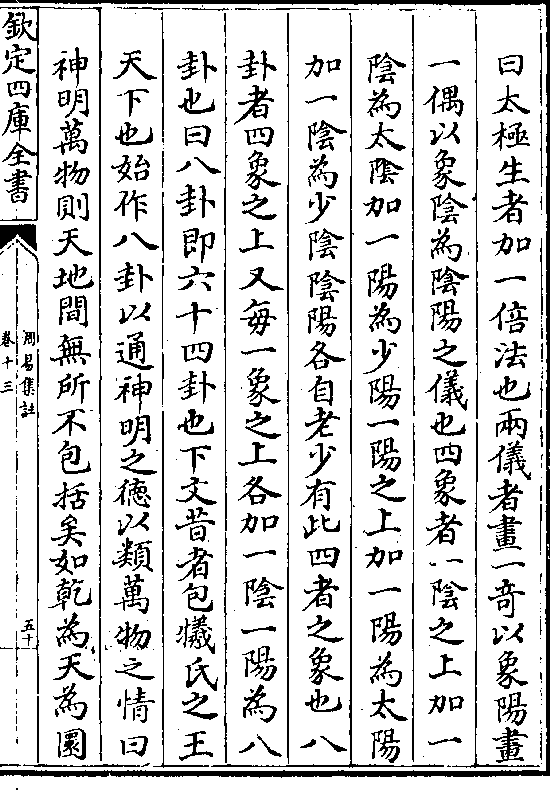 曰太極生者加一倍法也兩儀者畫一奇以象陽畫
一偶以象陰為陰陽之儀也四象者一陰之上加一
陰為太陰加一陽為少陽一陽之上加一陽為太陽
加一陰為少陰陰陽各自老少有此四者之象也八
卦者四象之上又每一象之上各加一陰一陽為八
卦也曰八卦即六十四卦也下文昔者包犧氏之王
天下也始作八卦以通神明之德以類萬物之情曰
神明萬物則天地間無所不包括矣如乾為天為圜
欽定四庫全書
周易集註
卷十三
五十